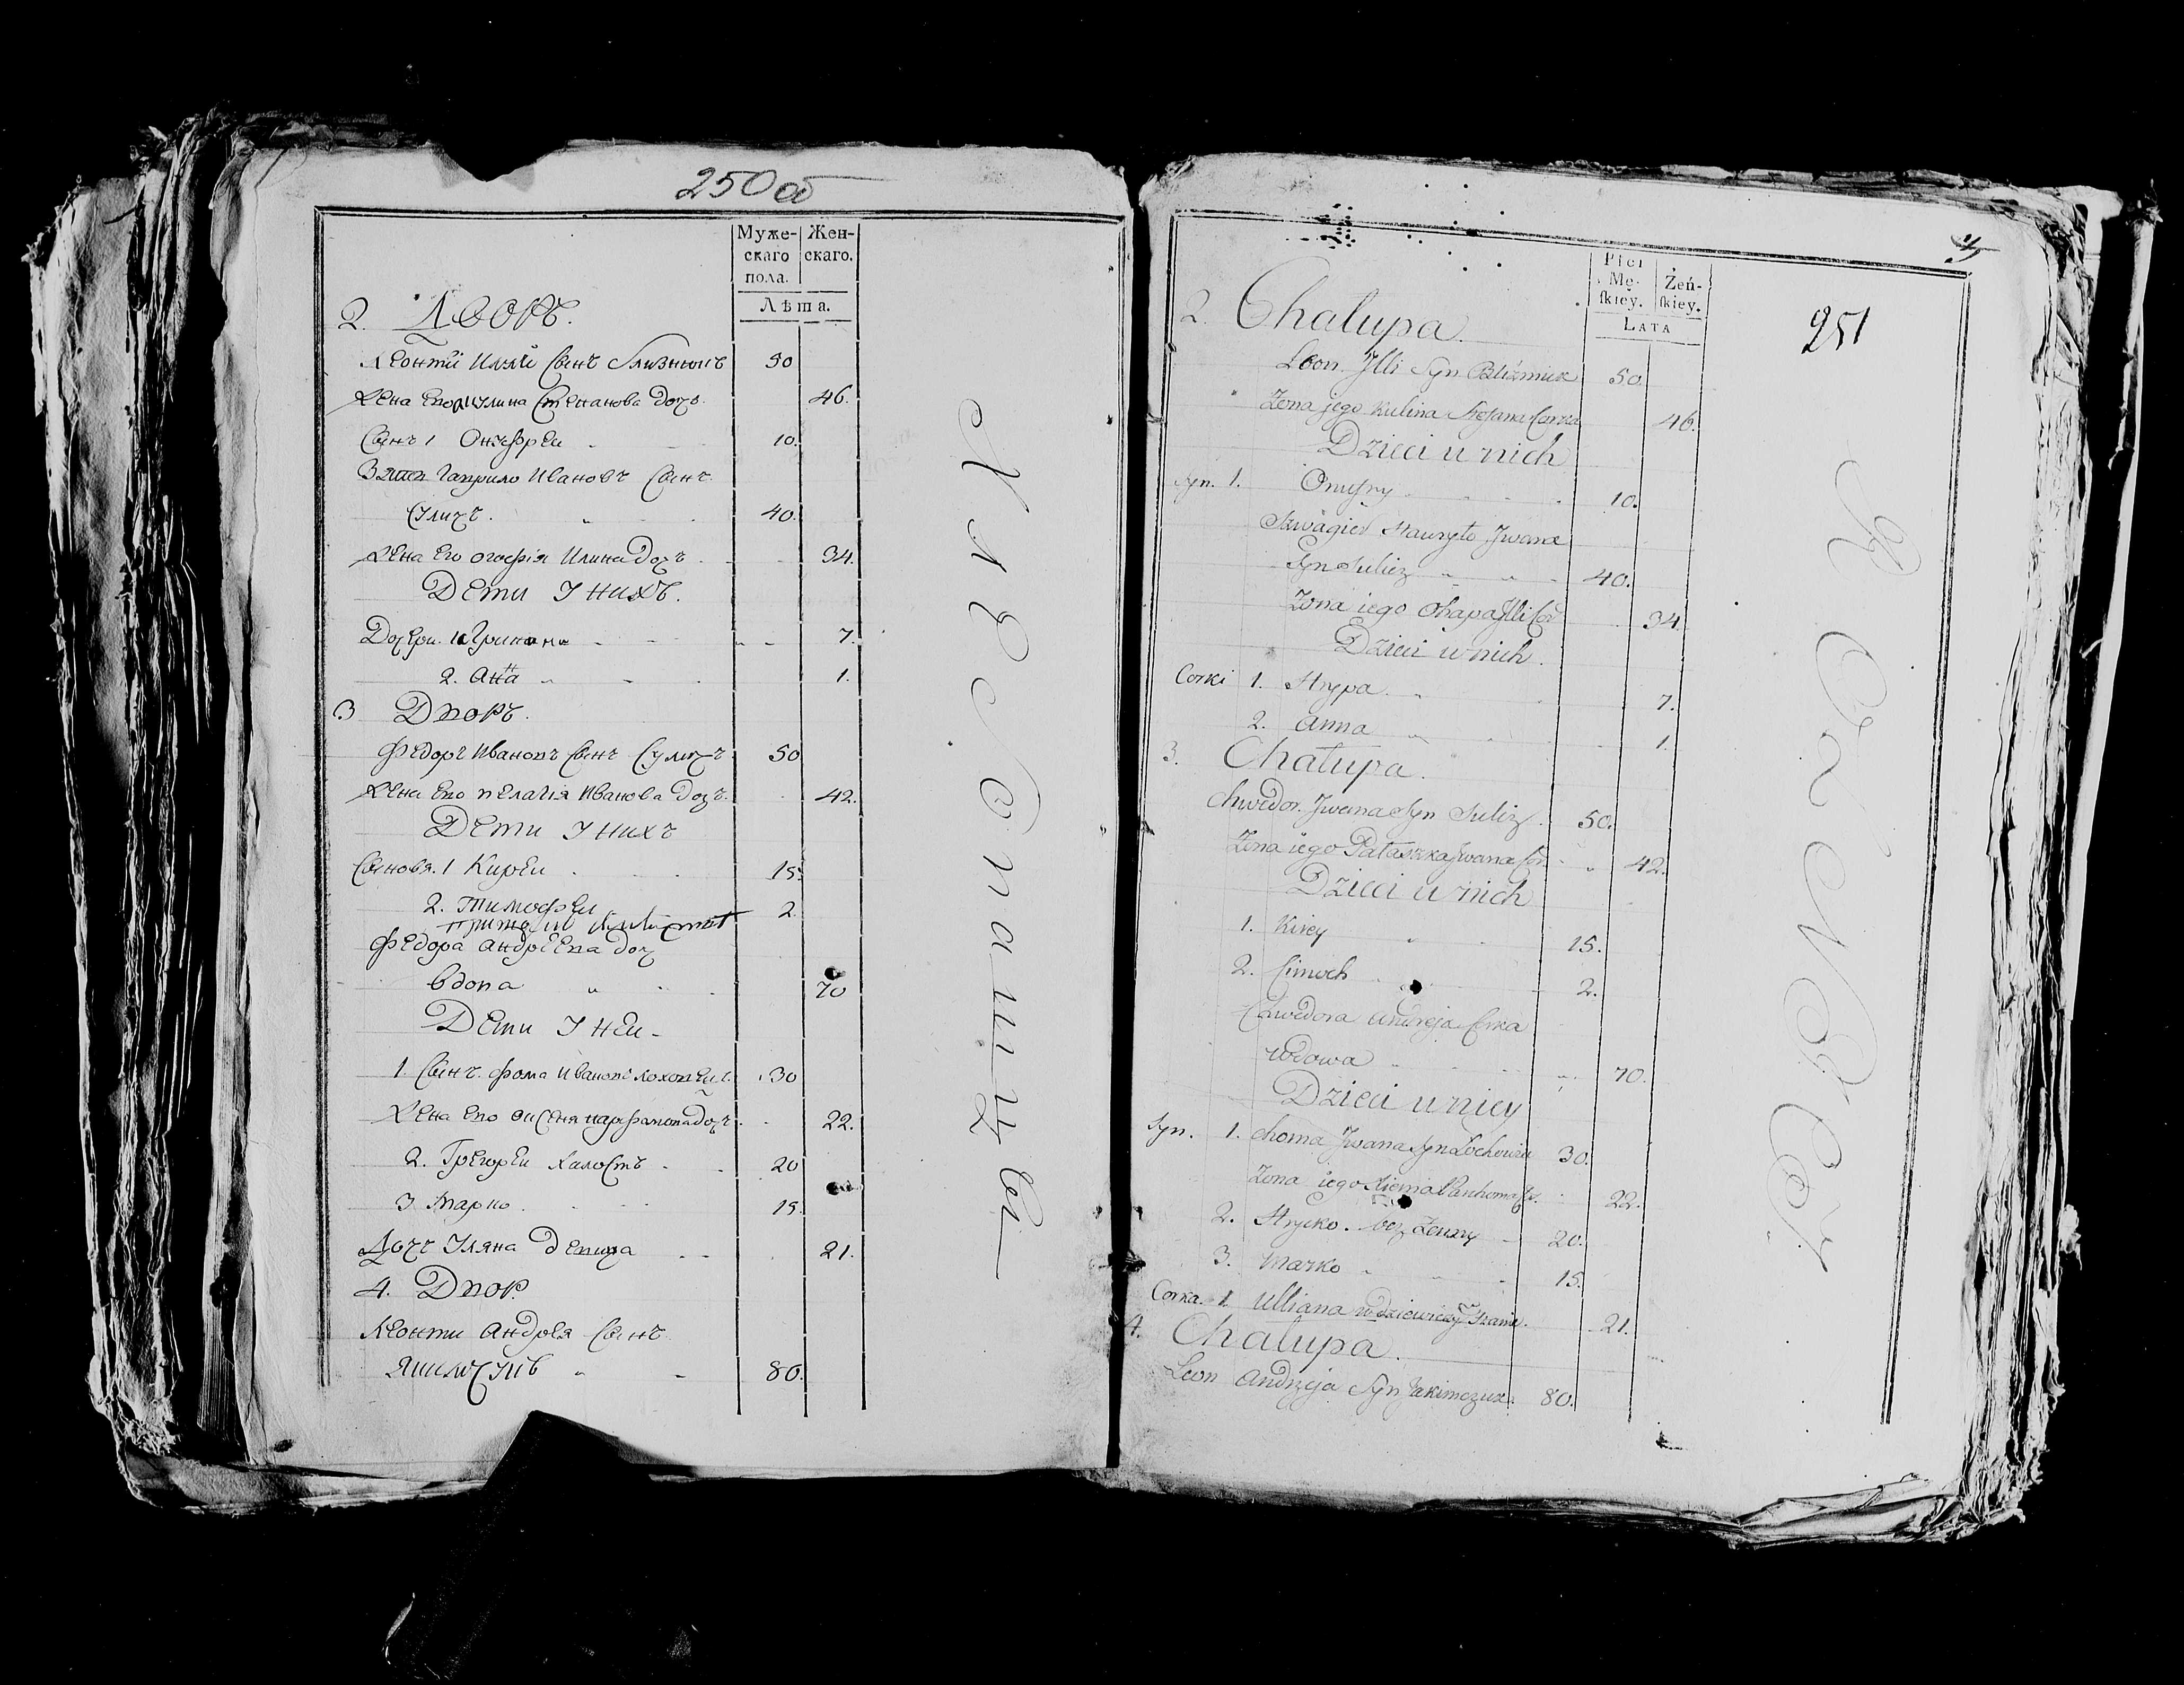 250 об
Муже-
скаго
пола.
Жен-
скаго.
Лѣта.
2. Дворъ.
Леонтй Иляй Сынъ 50
Жена Степанова Дочь. 46.
Сынъ 1 Онуфреи 10.
Зять Гаврило Ивановъ Сынъ
Сулич. 40.
Жена Его Огафія Илина Дочъ 34.
Дети У нихъ.
Дочери. 7.
2. Анна 1.
3 Дворъ.
Федоръ Ивановъ Сынъ Суличъ 50
Жена Его Пелагія Иванова Дочъ. 42.
Дети У нихъ
Сыновя. 1 Киреи 15.
2. Тимофеи 2.
Федора Андреева Доч
вдова 70
Дети У неи
1. Сынъ. Фома Ивановъ 30
Жена Его 22.
2. Грегореи Халостъ 20
3. Марко 15.
Дочъ Уляна Девица 21.
4. Двор
Леонти Андрея Сынъ
80.
4
251
Płci
Mę-
ſkiey.
Żeń-
ſkiey.
LATA
2. Chalupa.
Leon. Jlli Syn Bliźniuk 50.
Zona jego Kulina Stefana Corka 46.
Dzieci u nich
Syn. 1. Onufry 10.
Szwagier Hauryło Jwana
Syn Sulicz 40.
Zona iego Ohapa Jlli Cor 34.
Dzieci u nich.
Corki 1. Hrypa. 7.
2. Anna 1.
3. Chalupa.
Chwedor. Jwana Syn Suliz. 50.
Zona iego Pałaszka Jwana Cor 42.
Dzieci u nich
1. Kirey 15.
2. Cimoch 2.
Chwedora Andreja Corka
wdowa 70.
Dzieci u niey
Syn. 1. Choma Jwana Syn 30.
Zona iego 22.
2. Hrycko. bez Zenny 20.
3. Marko 15.
Corka. 1. Ulliana 21.
4. Chalupa.
Leon Andrzeja Syn Jakimczuk. 80.